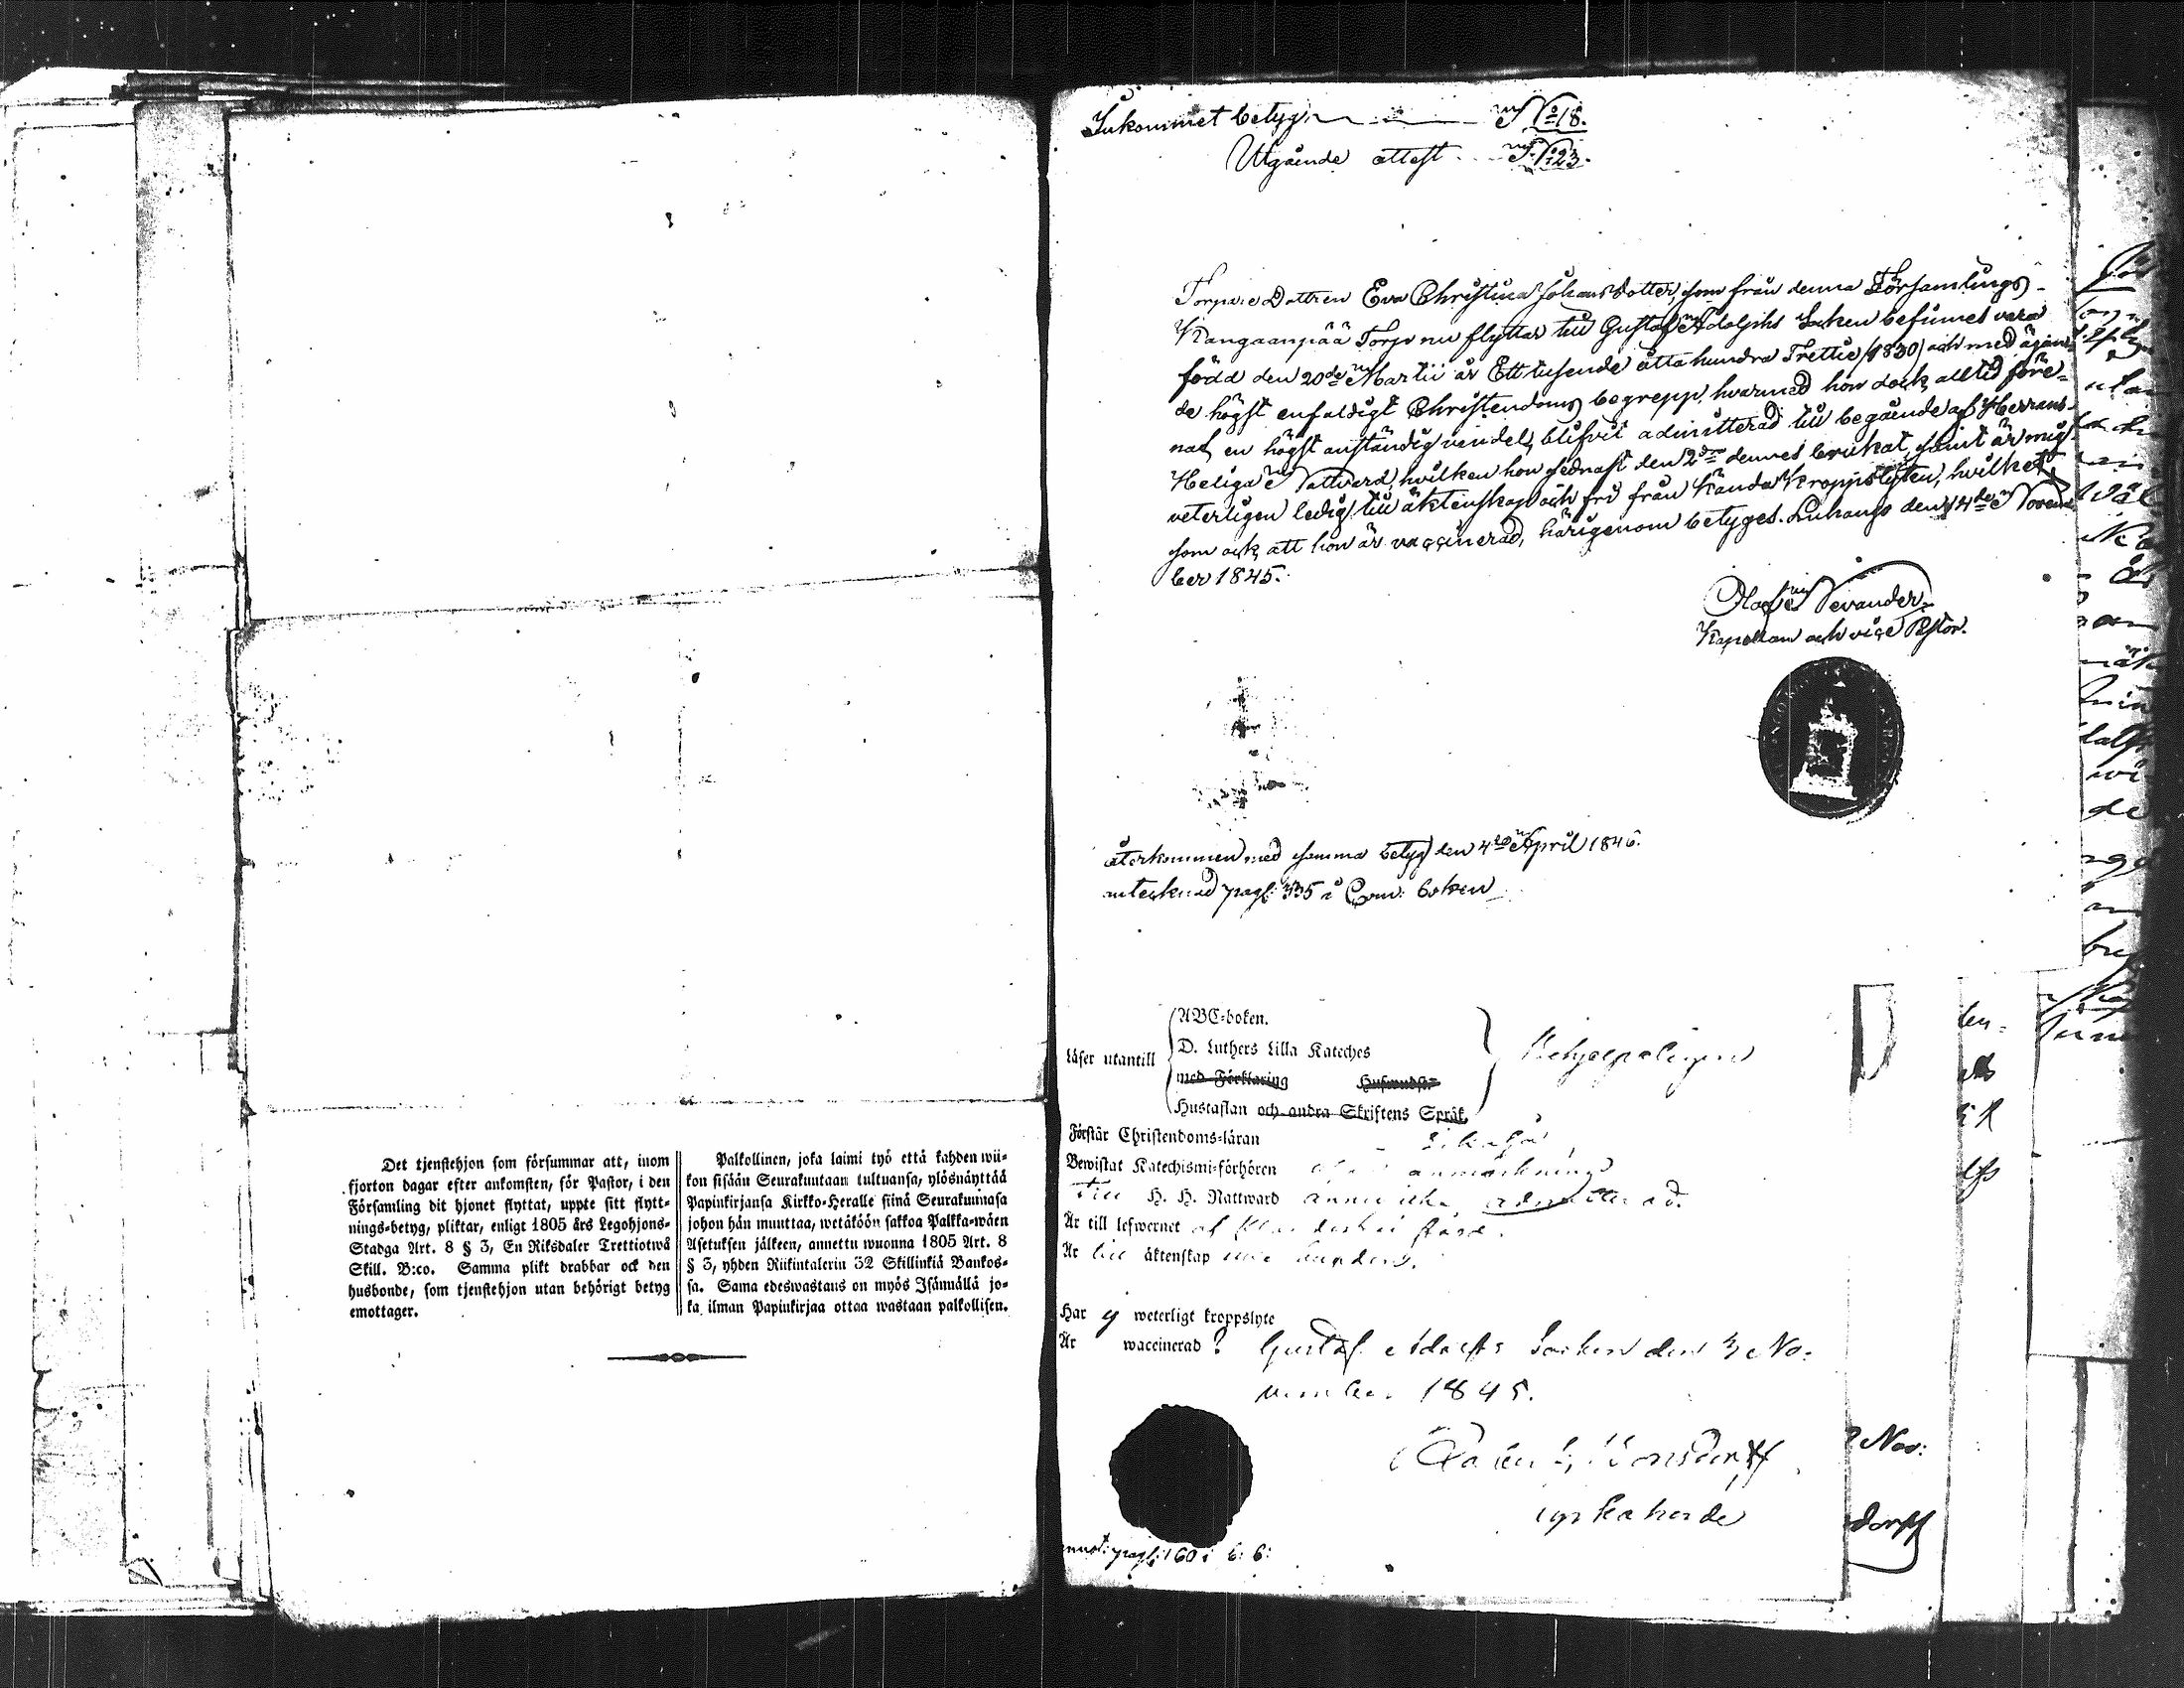 Det tjenstehjon som försummar att, inom
fjorton dagar efter ankomsten, för Pastor, i den
Församling dit hjonet flyttat, uppte sitt flytt-
nings-betyg, pliktar, enligt 1805 års Legohjons-
Stadga Art. 8 § 3, En Riksdaler Trettiotwå
Skill. B:co. Samma plikt drabbar ock den
husbonde, som tjenstehjon utan behörigt betyg
emottager.
Palkollinen, joka laimi työ että kahden wii-
kon sisään Seurakuntaan tultuansa, ylösnäyttää
Papinkirjansa Kirkko-Heralle siinä Seurakunnasa
johon hän muuttaa, wetäköön sakkoa Palkka-wäen
Asetuksen jälkeen, annettu wuonna 1805 Art. 8
§ 3, yhden Riikintalerin 32 Skillinkiä Bankos-
sa. Sama edeswastaus on myös Isännällä jo-
ka ilman Papinkirjaa ottaa wastaan palkollisen.
Inkommet betyg N:o 18.
Utgående attest N:o 23.
Torpare Dottren Eva Christina Johansdotter, som från denna Församlings
Kangaanpää Torp nu flyttar till Gustaf Adolphs Socken befunnet vara
född den 20de Martii år Ett tusende åtta hundra Trettie (1830) och med ägan-
de högst enfaldigt Christendoms begrepp, hvarmed hon dock alltid före-
nat en högst anständig vandel, blifvit admitterad till begående af Herrans
Heliga Nattvard, hvilken hon sednast den 2dre dennes brukat, samt är mig
veterligen ledig till äktenskap och fri från kända kroppslyten, hvilket,
som ock att hon är vaccinerad, härigenom betyges. Luhango den 14de Novem-
ber 1845.
Nevander
Kapellan och vice Pastor.
återkommen med samma betyg den 4de April 1846.
antecknad pag: 335 i Com: boken
Läser utantill
ABC-boken.
D. Luthers Lilla Kateches
med Förklaring
Hustaflan och andra Skriftens Språk
Förstår Christendoms-läran
Bewistat Katechismi-förhören anmärkning
Till H. H. Nattward ännu icke admitterad.
Är till lefwernet af
Är till äktenskap
Har ej weterligt kroppslyte
Är waccinerad ? Gustaf Adolfs Socken den 3 No-
vember 1845.
kyrkoherde
pag: 160 i b: b: